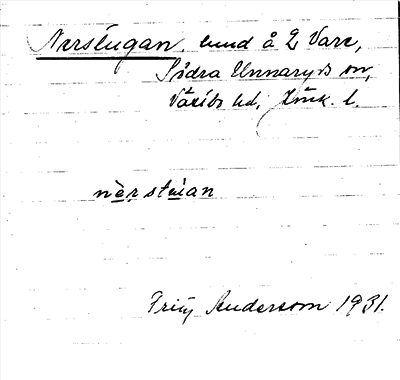 Nerstugan, lund å 2 Vare,
Södra Unnaryds sn,
Västbo hd, Jönk. l.
nèrstúan
Fritz Andersson 1931.